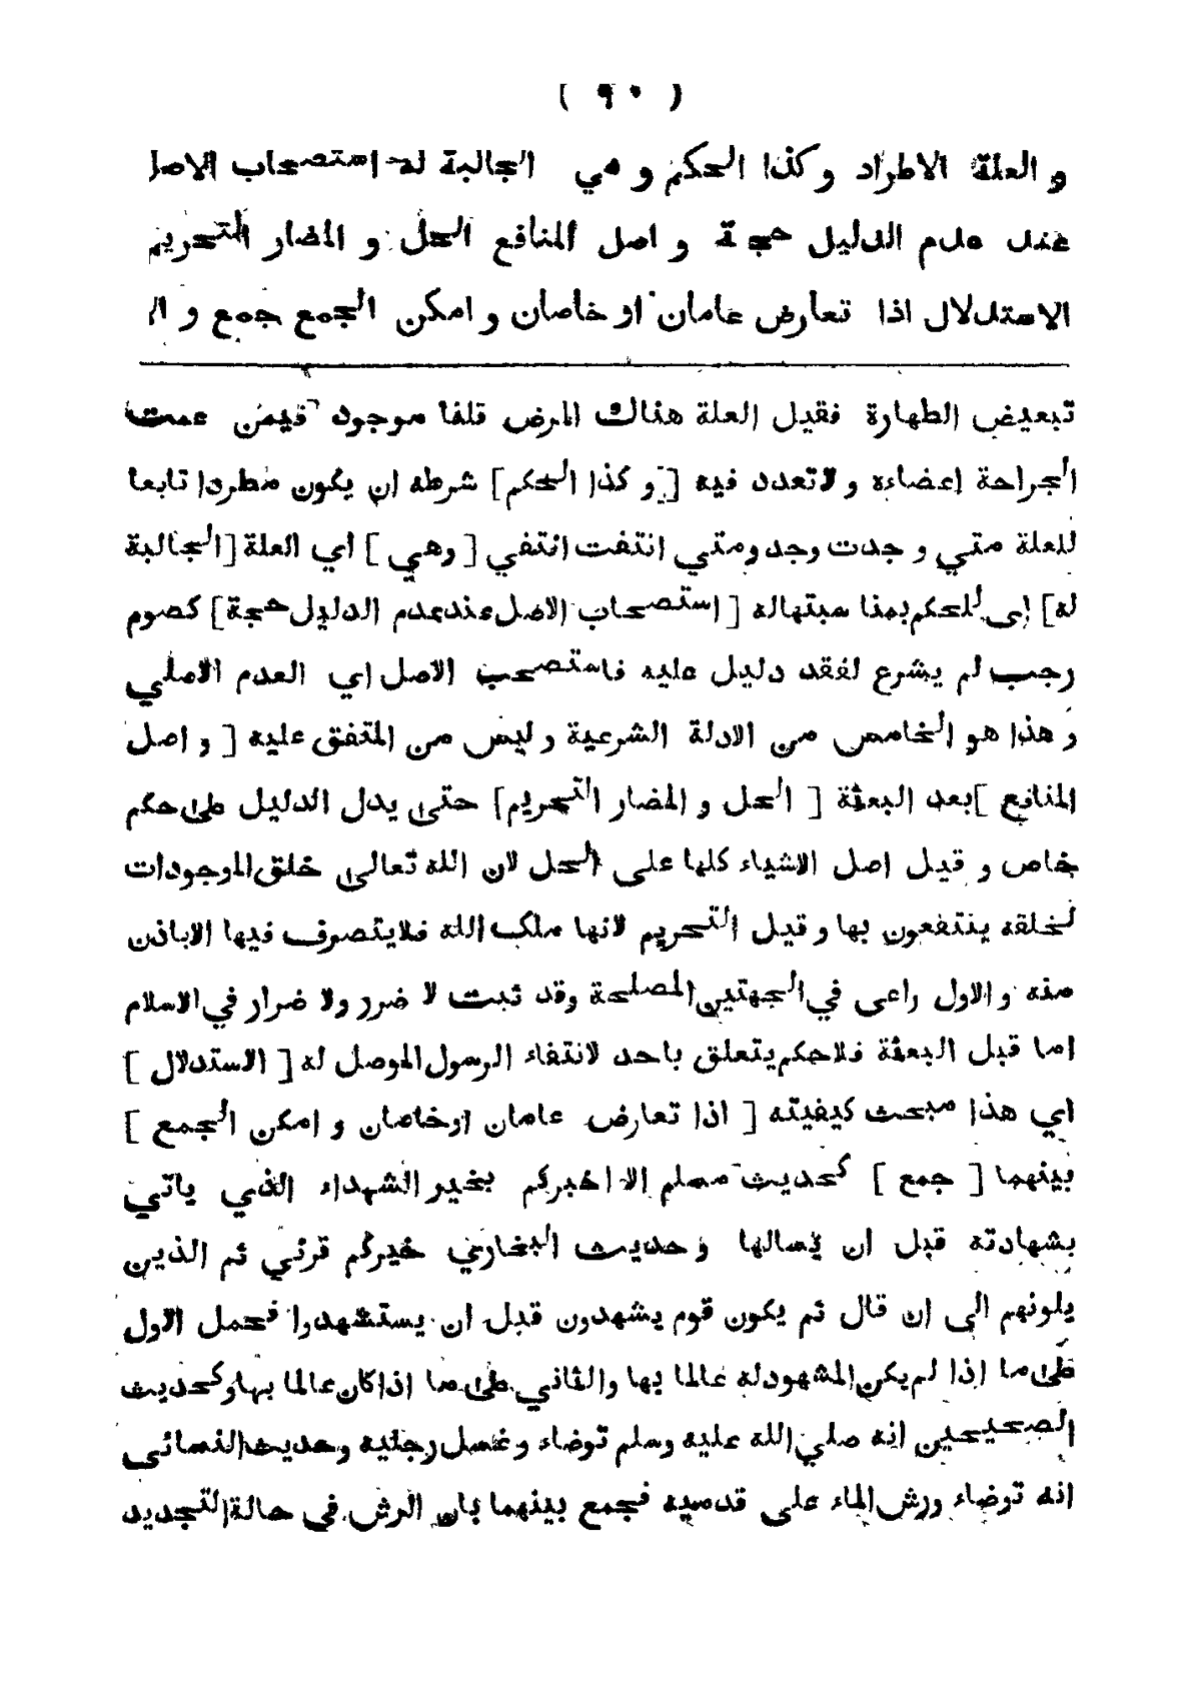 ( ٩٠ )
و العلة الاطراد و كذا الحكم و هي الجالبة له استصحاب الاصل
عند عدم الدليل حجة و اصل المنافع الحل و المضار التحريم
الاستدلال اذا تعارض عامان او خاصان و امكن الجمع جمع و الا
تبعيض الطهارة فقيل العلة هناك المرض قلنا موجود فيمن عمت
الجراحة اعضاءه و لا تعدد فيه [ و كذا الحكم ] شرطه ان يكون مطردا تابعا
للعلة متي و جدت وجد ومتي انتفت انتفي [ وهي ] اي العلة [ الجالبة
له ] اى للحكم بمنا سبتهاله [ استصحاب الاصل عند عدم الدليل حجة ] كصوم
رجب لم يشرع لفقد دليل عليه فاستصحب الاصل اي العدم الاصلي
و هذا هو الخامس من الادلة الشرعية و ليس من المتفق عليه [ و اصل
المنافع ] بعد البعثة [ الحل و المضار التحريم ] حتى يدل الدليل على حكم
خاص و قيل اصل الاشياء كلها على الحل لان الله تعالى خلق الموجودات
لخلقه ينتفعون بها و قيل التحريم لانها ملك الله فلا يتصرف فيها الا باذن
منه و الاول راعى في الجهتين المصلحة وقد ثبت لا ضرر ولا ضرار في الاسلام
اما قبل البعثة فلا حكم يتعلق باحد لانتفاء الرسول الموصل له [ الاستدلال ]
اي هذا مبحث كيفيته [ اذا تعارض عامان او خاصان و امكن الجمع ]
بينهما [ جمع ] كحديث مسلم الا اخبركم بخير الشهداء الذي ياتي
بشهادته قبل ان يسالها و حديث البخاري خيركم قرني ثم الذين
يلونهم الى ان قال ثم يكون قوم يشهدون قبل ان يستشهدوا فحمل الاول
على ما اذا لم يكن المشهودله عالما بها والثاني على ما اذا كان عالما بها وكحديث
الصحيحين انه صلي الله عليه وسلم توضاء و غسل رجليه وحديث النسائى
انه توضاء ورش الماء على قدميه فجمع بينهما بان الرش في حالة التجديد